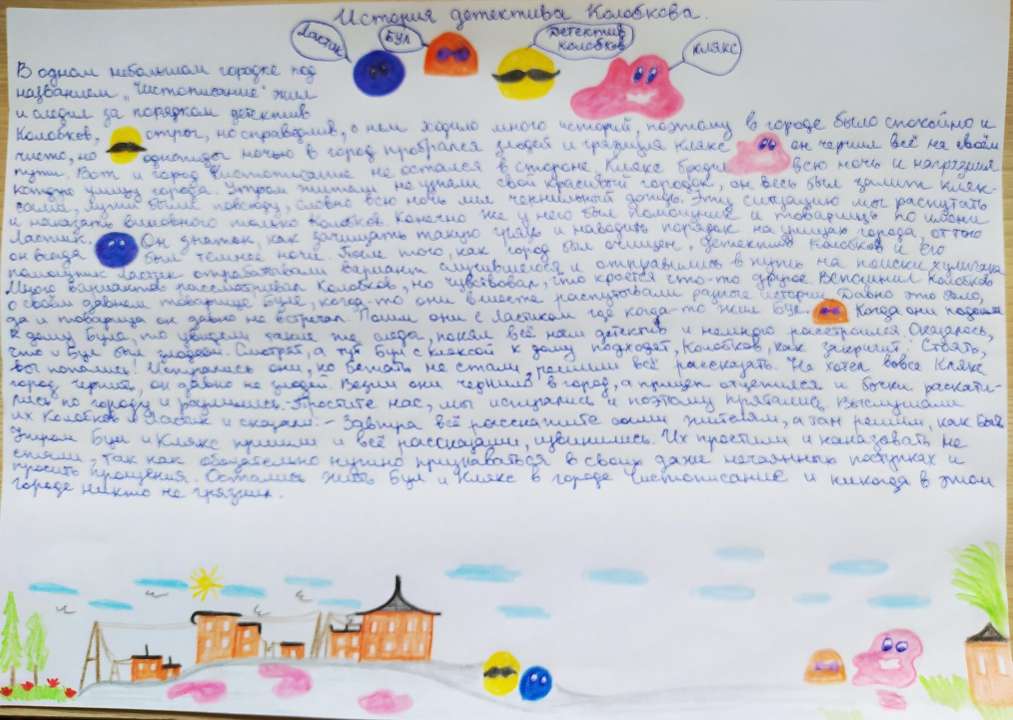 История детектива Колобкова.
Ластик
БУЛ
Детектив Колобков
КЛЯКС
В одном небольшом городке под
названием „Чистописание" жил
и следил за порядком детектив
Колобков, строг, но справедлив, о нем ходило много историй, поэтому в городе было спокойно и
чисто, но однажды ночью в город пробрался злодей и грязнуля Клякс он чернил всё на своём
пути. Вот и город Чистописание не остался в стороне. Клякс бродил всю ночь и загрязнил
каждую улицу города. Утром жители не узнали свой красивый городок, он весь был залит клякс-
сами, лужи были повсюду, словно всю ночь лил чернильный дождь. Эту ситуацию мог распутать
и наказать виновного только Колобков. Конечно же у него был помощник и товарищь по имени
Ластик. Он знаток, как зачищать такую грязь и наводить порядок на улицах города, от того
он всегда был темнее ночи. После того, как город был очищен, детектив Колобков и его
помощник Ластик отрабатывали вариант случившегося и отправились в путь на поиски хулигана
Много вариантов рассматривал Колобков, но чувствовал, что кроется что-то другое Вспомнил Колобков
о своём давнем товарище Буле, когда-то они вместе распутывали разные истории. Давно это было,
да и товарища он давно не встречал. Пошли они с Ластиком где когда-то жил Бул. Когда они подошли
к дому Була, то увидели такие же следы, понял всё наш детектив и немного расстроился. Оказалось,
что и Бул был злодеем. Смотрят, а тут Бул с кляксой к дому подходят, Колобков, как закричит: Стоять,
вы попались! Испугались они, но бежать не стали, решили всё рассказать. Не хотел вовсе Клякс
город чернить, он давно не злодей Везли они чернила в город, а прицеп отцепился и бочки раскати-
лись по городу и разлились. -Простите нас, мы испугались и поэтому прятались. Выслушали
их Колобков и Ластик и сказали: - Завтра всё расскажите всем жителям, а там решим, как быть
Утром Бул и Клякс пришли и всё рассказали, извинились. Их простили и наказывать не
стали, так как обязательно нужно признаваться в своих даже нечаянных поступках и
просить прощения. Остались жить Бул и Клякс в городе Чистописание и никогда в этом
городе никто не грязнил.